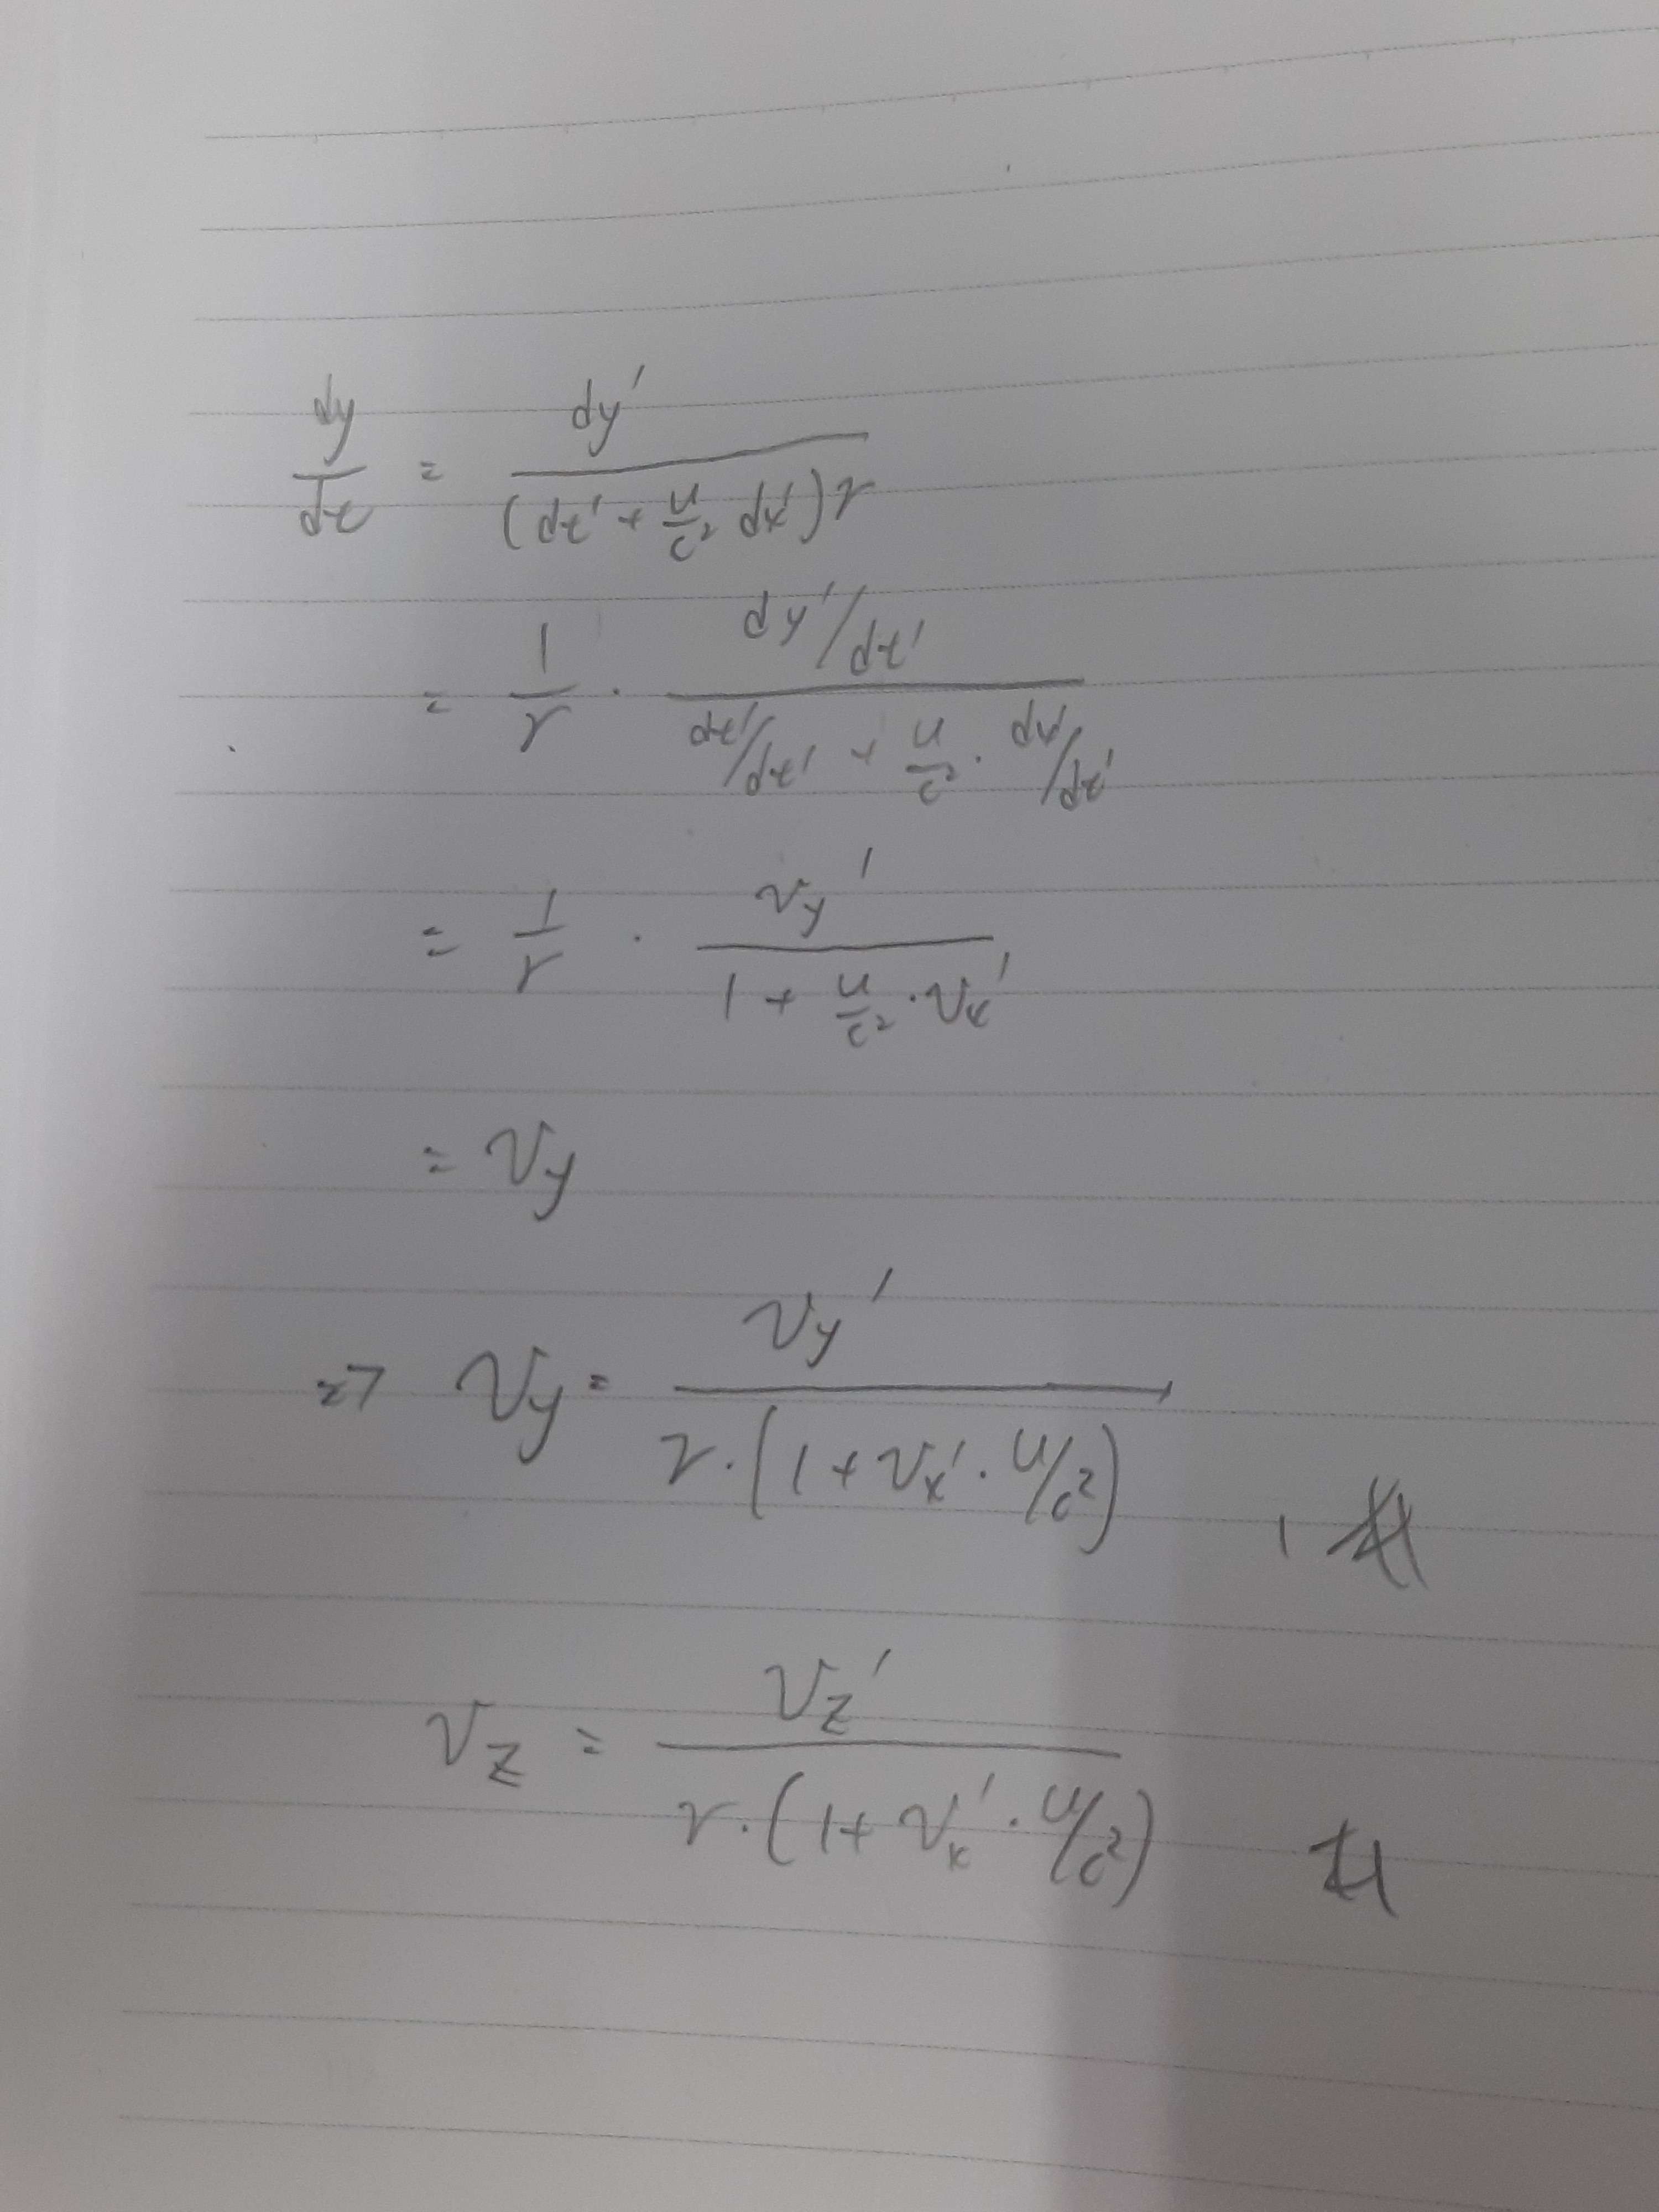 dy/dt = dy'/((dt' + u/c² dx')γ)
= 1/γ · (dy'/dt')/(dt'/dt' + u/c² · dx'/dt')
= 1/γ · vy'/(1 + u/c² · vx')
= vy
=> vy = vy'/(γ·(1 + vx' · u/c²)) , #
vz = vz'/(γ·(1 + vx' · u/c²)) #